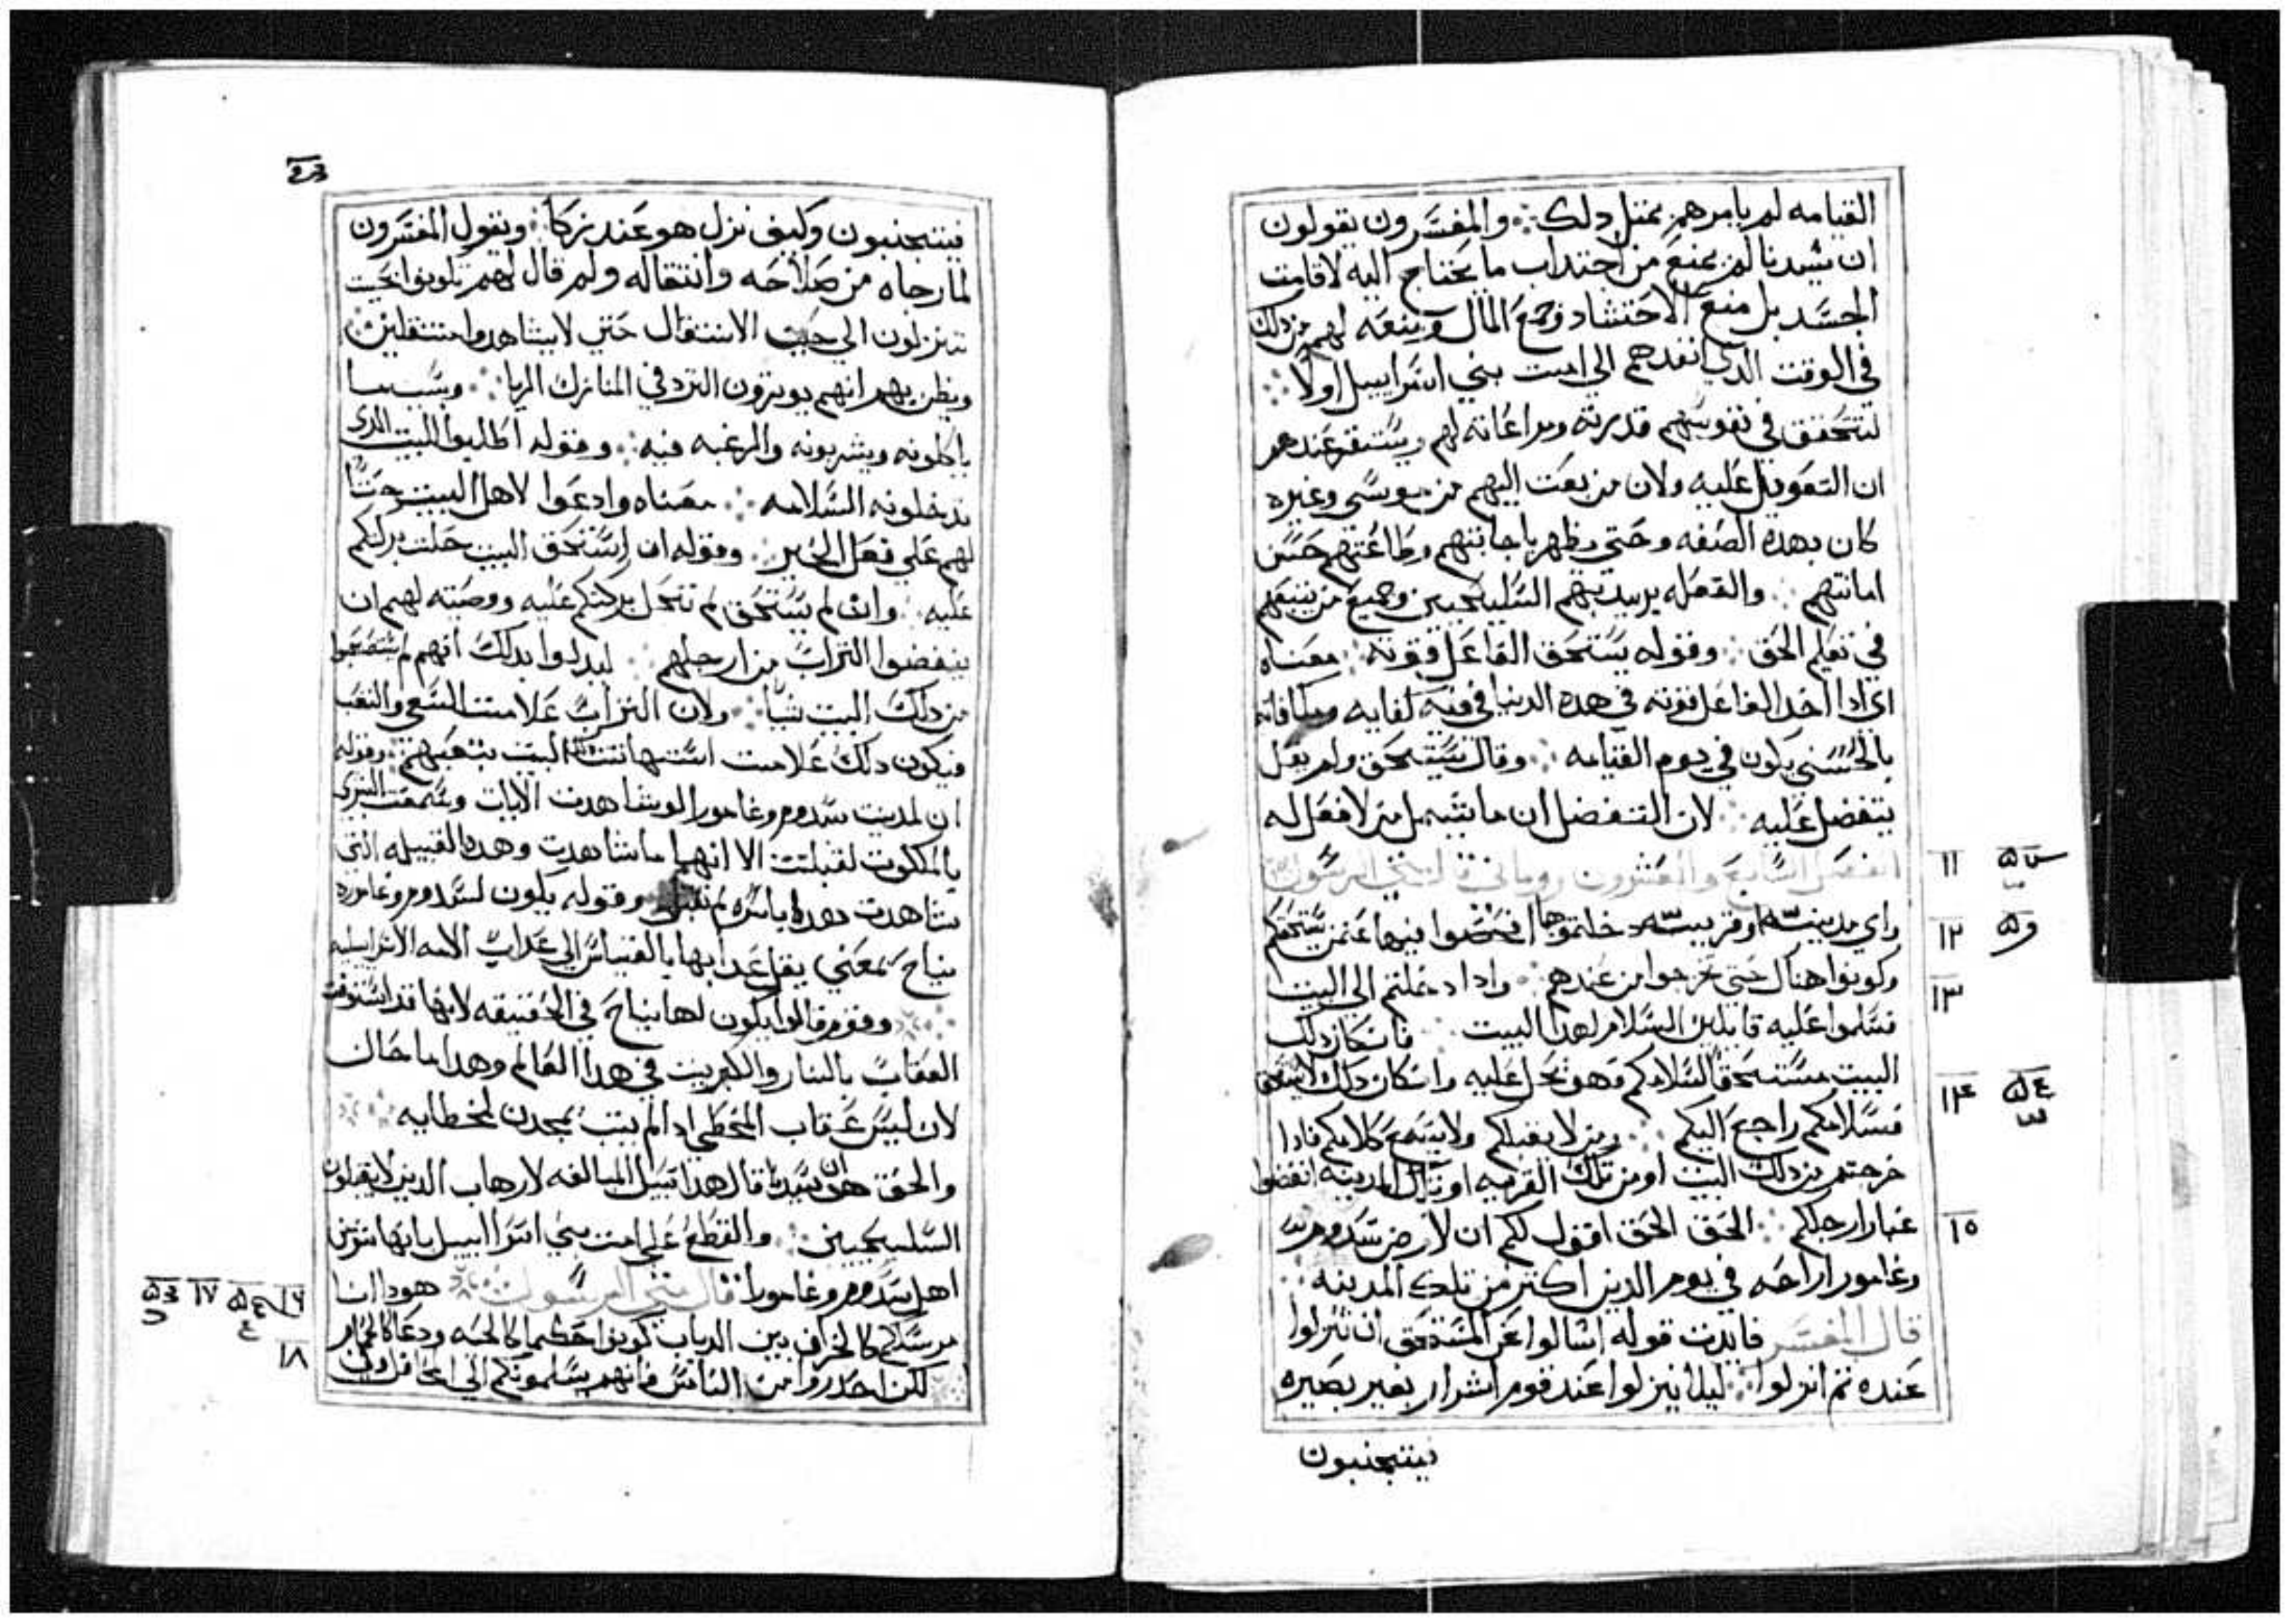 القيامه لم يامرهم بمتل دلك ۞ والمفسرون يقولون
ان سيدنا لم يمنع من اجتداب ما يحتاج اليه لاقامت
الجسد بل منع الاحتشاد وجمع المال ومنعه لهم من دلك
في الوقت الدي انفدهم الي امت بني اسراييل اولا
لتتحقق في نفوسهم قدرته ومراعاته لهم ويستقر عندهم
ان التعويل عليه ولان من بعت اليهم من موسي وغيره
كان بهده الصفه وحتي يظهر باجابتهم وطاعتهم حسن
امانتهم والفعله يريد بهم السليحيين وجميع من يتبعهم
في تعليم الحق وقوله يستحق الفاعل قوته معناه
اي ادا اخد الفاعل قوته في هده الدنيا فيه كفايه ومكافاته
بالحسني يكون في يوم القيامه وقال يستحق ولم يقل
يتفضل عليه لان التفضل انما يشمل من لا فعل له
الفصل السابع والعشرون روماني قال متي الرسول
واي مدينه او قريه دخلتموها افحصوا فيها عمن يستحقكم
وكونوا هناك حتي تخرجوا من عندهم وادا دخلتم الي البيت
فسلموا عليه قايلين السلام لهدا البيت فان كان دلك
البيت مستحقا لسلامكم فهو يحل عليه وان كان دلك لا يستحق
فسلامكم راجع اليكم ومن لا يقبلكم ولا يسمع كلامكم فادا
خرجتم من دلك البيت او من تلك القريه او تلك المدينه انفضوا
غبار ارجلكم الحق الحق اقول لكم ان لارض سدوم
وغامورا راحه في يوم الدين اكتر من تلك المدينه
قال المفسر فايدت قوله اسالوا عن المستحق ان تنزلوا
عنده تم انزلوا ليلا ينزلوا عند قوم اشرار بغير بصيره
فيتجنبون
فيتجنبون وكيف نزل هو عند زكا ويقول المفسرون
لما رجاه من صلاحه وانتقاله ولم قال لهم تكونوا بحيت
تنزلون الي حين الانتقال حتي لا يشاهدوا متنقلين
ويظن بهم انهم يوترون التردد في المنازل لاريا وبسبب ما
ياكلونه ويشربونه والرغبه فيه وقوله اطلبوا للبيت الدي
تدخلونه السلامه معناه وادعوا لاهل البيت حتا
لهم علي فعل الخير وقوله ان استحق البيت حلت بركتكم
عليه وان لم يستحق لم تحل بركتكم عليه ووصيته لهم ان
ينفضوا التراب من ارجلهم ليدلوا بدلك انهم لم يستصحبوا
من دلك البيت شيا ولان التراب علامت السعي والتعب
فيكون دلك علامت استهانت البيت بتعبهم وقوله
ان لمدينت سدوم وغامورا لو شاهدت الايات وسمعت البشري
بالملكوت لقبلت الا انها ما شاهدت وهده القبيله التي
شاهدت هدا باسره لم تقبل وقوله يكون لسدوم وغاموره
نياح بمعني يقل عدابها بالقياس الي عداب الامه الاسراييليه
وقوم قالوا يكون لها نياح في الحقيقه لانها قد استوفت
العقاب بالنار والكبريت في هدا العالم وهدا ما حال
لان ليس عقاب المخطي ادا لم يتب يمحدن لخطايه
والحق ان سيدنا قال هدا قبيل المبالغه لارهاب الدين لا يقبلون
السليحيين والقطع علي امت بني اسراييل بانها شر من
اهل سدوم وغامورا قال متي الرسول هودا انا
مرسلكم كالخراف بين الدياب كونوا حكما كالحيه ودعا كالحمام
لكن احدروا من الناس فانهم يسلمونكم الي المحافل
١١
١٢
١٣
١٤
١٥
١٦
١٧
١٨